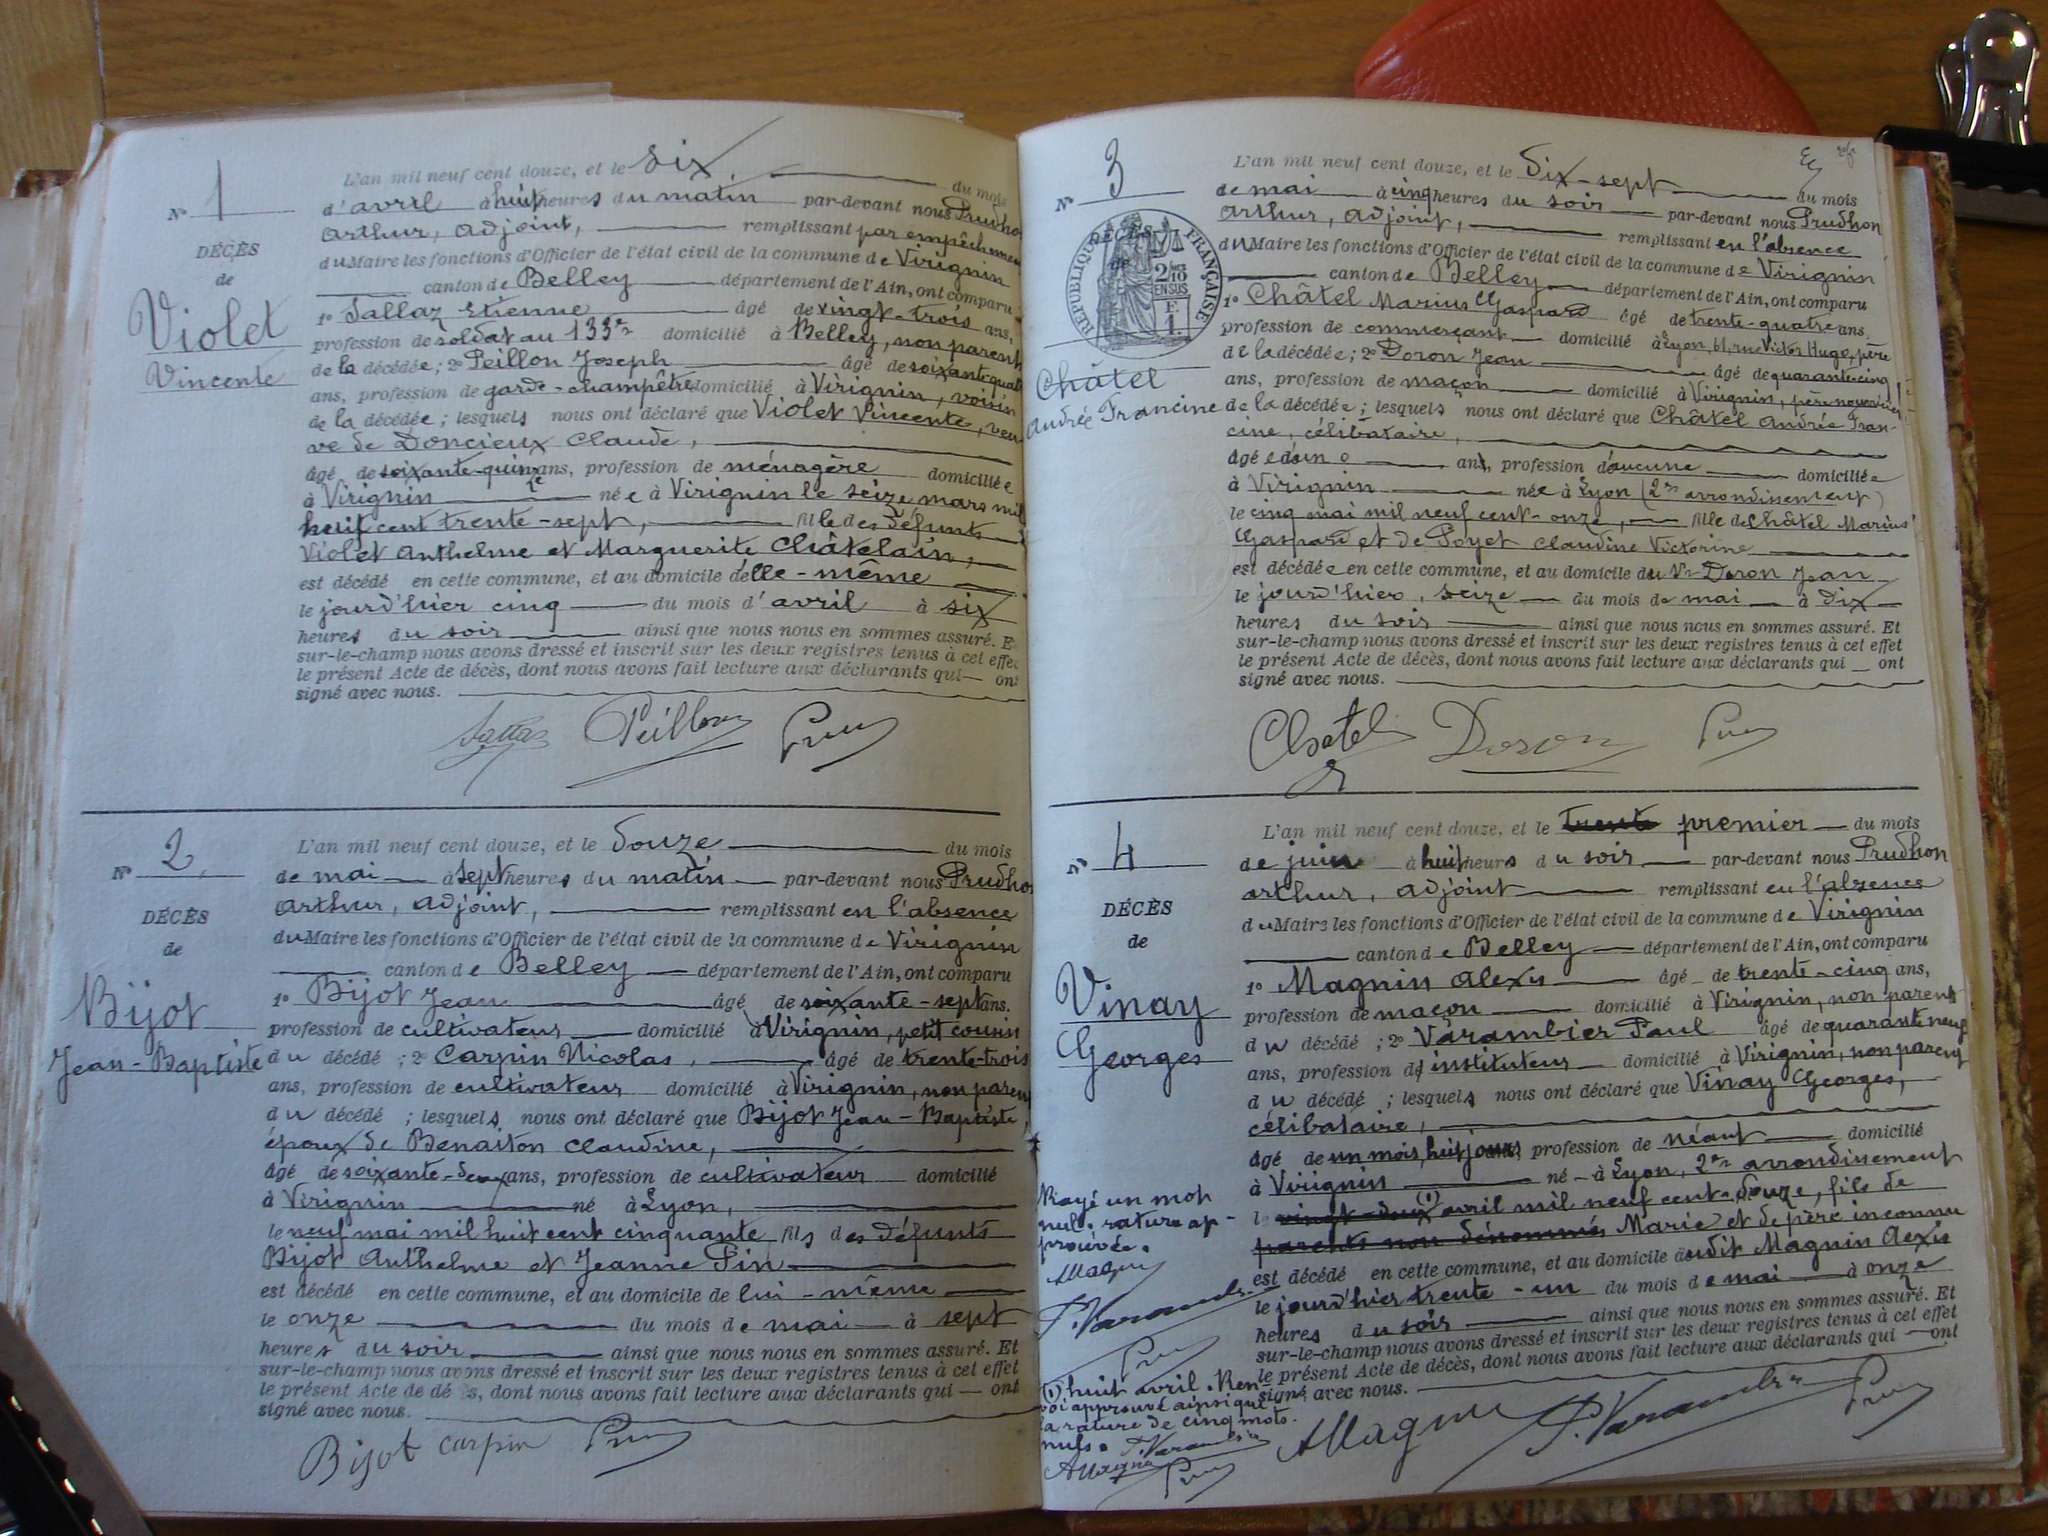 N° 1
DÉCÈS
de
Violet
Vincente
L'an mil neuf cent douze, et le six du mois
d'avril à huit heures du matin par-devant nous Prudho
Arthur, adjoint, remplissant par empêchemen
du Maire les fonctions d'Officier de l'état civil de la commune de Virignin
canton de Belley département de l'Ain, ont comparu
1° Sallaz Etienne âgé de vingt-trois ans,
profession de soldat au 133e domicilié à Belley, non parent
de la décédée; 2° Peillon Joseph âgé de soixante-quat
ans, profession de garde-champêtre domicilié à Virignin, voisin
de la décédée; lesquels nous ont déclaré que Violet Vincente, veu-
ve de Doncieux Claude,
âgé de soixante-quinze ans, profession de ménagère domiciliée
à Virignin née à Virignin le seize mars mil
huit cent trente-sept, fille des défunts
Violet Anthelme et Marguerite Châtelain,
est décédé en cette commune, et au domicile d'elle-même
le jourd'hier cinq du mois d'avril à six
heures du soir ainsi que nous nous en sommes assuré. E
sur-le-champ nous avons dressé et inscrit sur les deux registres tenus à cet effet
le présent Acte de décès, dont nous avons fait lecture aux déclarants qui ont
signé avec nous.
Sallaz Peillon
N° 2
DÉCÈS
de
Bijot
Jean-Baptiste
L'an mil neuf cent douze, et le douze du mois
de mai à sept heures du matin par-devant nous Prudho
Arthur, adjoint, remplissant en l'absence
du Maire les fonctions d'Officier de l'état civil de la commune de Virignin
canton de Belley département de l'Ain, ont comparu
1° Bijot Jean âgé de soixante-sept ans.
profession de cultivateur domicilié à Virignin, petit cousin
du décédé; 2° Carpin Nicolas, âgé de trente-trois
ans, profession de cultivateur domicilié à Virignin, non paren
du décédé; lesquels nous ont déclaré que Bijot Jean-Baptiste,
époux de Benaiton Claudine,
âgé de soixante-deux ans, profession de cultivateur domicilié
à Virignin né à Lyon,
le neuf mai mil huit cent cinquante fils des défunts
Bijot Anthelme et Jeanne Pin
est décédé en cette commune, et au domicile de lui-même
le onze du mois de mai à sept
heures du soir ainsi que nous nous en sommes assuré. Et
sur-le-champ nous avons dressé et inscrit sur les deux registres tenus à cet effet
le présent Acte de décès, dont nous avons fait lecture aux déclarants qui ont
signé avec nous.
Bijot Carpin
N° 3
DÉCÈS
de
RÉPUBLIQUE FRANÇAISE
2/10 EN SUS
Châtel
Andrée Francine
L'an mil neuf cent douze, et le dix-sept du mois
de mai à cinq heures du soir par-devant nous Prudhon
Arthur, adjoint, remplissant en l'absence
du Maire les fonctions d'Officier de l'état civil de la commune de Virignin
canton de Belley département de l'Ain, ont comparu
1° Châtel Marius Gaspard âgé de trente-quatre ans,
profession de commerçant domicilié à Lyon, 61, rue Victor Hugo, père
de la décédée; 2° Doron Jean âgé de quarante-cinq
ans, profession de maçon domicilié à Virignin, père nourricier
de la décédée; lesquels nous ont déclaré que Châtel Andrée Fran-
cine, célibataire,
âgée d'un an, profession d'aucune domiciliée
à Virignin née à Lyon (2me arrondissement)
le cinq mai mil neuf cent-onze, fille de Châtel Marius
Gaspard et de Poyet Claudine Victorine
est décédée en cette commune, et au domicile du Sr Doron Jean
le jourd'hier, seize du mois de mai à dix
heures du soir ainsi que nous nous en sommes assuré. Et
sur-le-champ nous avons dressé et inscrit sur les deux registres tenus à cet effet
le présent Acte de décès, dont nous avons fait lecture aux déclarants qui ont
signé avec nous.
Chatel Doron
N° 4
DÉCÈS
de
Vinay
Georges
L'an mil neuf cent douze, et le trente premier du mois
de juin à huit heures du soir par-devant nous Prudhon
Arthur, adjoint remplissant en l'absence
du Maire les fonctions d'Officier de l'état civil de la commune de Virignin
canton de Belley département de l'Ain, ont comparu
1° Magnin Alexis âgé de trente-cinq ans,
profession de maçon domicilié à Virignin, non parent
du décédé; 2° Varambier Paul âgé de quarante neuf
ans, profession d'instituteur domicilié à Virignin, non parent
du décédé; lesquels nous ont déclaré que Vinay Georges,
célibataire,
âgé de un mois, huit jours, profession de néant domicilié
à Virignin né à Lyon, 2me arrondissement
le vingt-deux (1) avril mil neuf cent-douze, fils de
parents non dénommés Marie et de père inconnu
est décédé en cette commune, et au domicile dudit Magnin Alexis
le jourd'hier trente-un du mois de mai à onze
heures du soir ainsi que nous nous en sommes assuré. Et
sur-le-champ nous avons dressé et inscrit sur les deux registres tenus à cet effet
le présent Acte de décès, dont nous avons fait lecture aux déclarants qui ont
signé avec nous.
Rayé un mot
nul. rature ap-
prouvée.
AMagnin
P. Varambier
(1) huit avril. Ren-
voi approuvé ainsi que
la rature de cinq mots
nuls.
P. Varambier
AMagnin
AMagnin P. Varambier